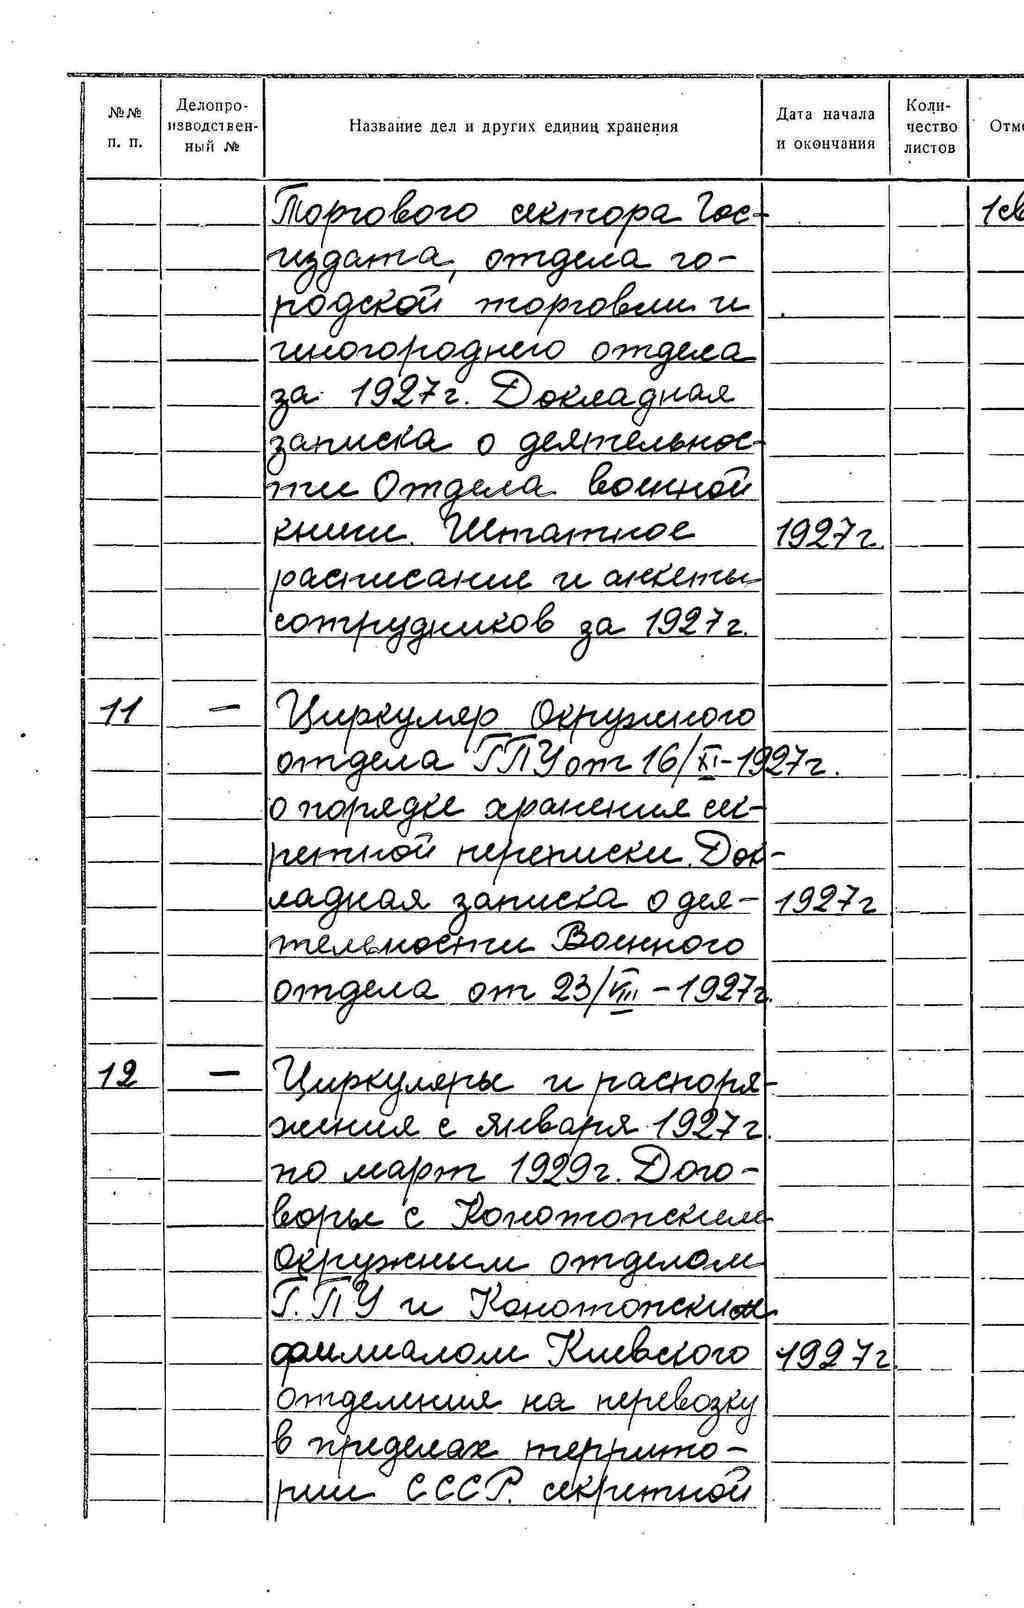 №№ п. п. Делопро-изводствен-ный № Название дел и других единиц хранения Дата начала и окончания Коли-чество листов Отм
Торгового сектора Гос- 1св
издата, отдела го-
родской торговли и
иногороднего отдела
за 1927г. Докладная
записка о деятельнос-
ти Отдела военной
книги. Штатное 1927г.
расписание и анкеты
сотрудников за 1927г.
11 — Циркуляр Окружного
отдела ГПУ от 16/XI-1927г.
о порядке хранения сек-
ретной переписки. Док-
ладная записка о дея- 1927г
тельности Военного
отдела от 23/VIII-1927г.
12 — Циркуляры и распоря-
жения с января 1927г.
по март 1929г. Дого-
воры с Конотопским
Окружным отделом
Г.ПУ и Конотопским
филиалом Киевского 1927г.
отделения на перевозку
в пределах террито-
рии СССР. секретной